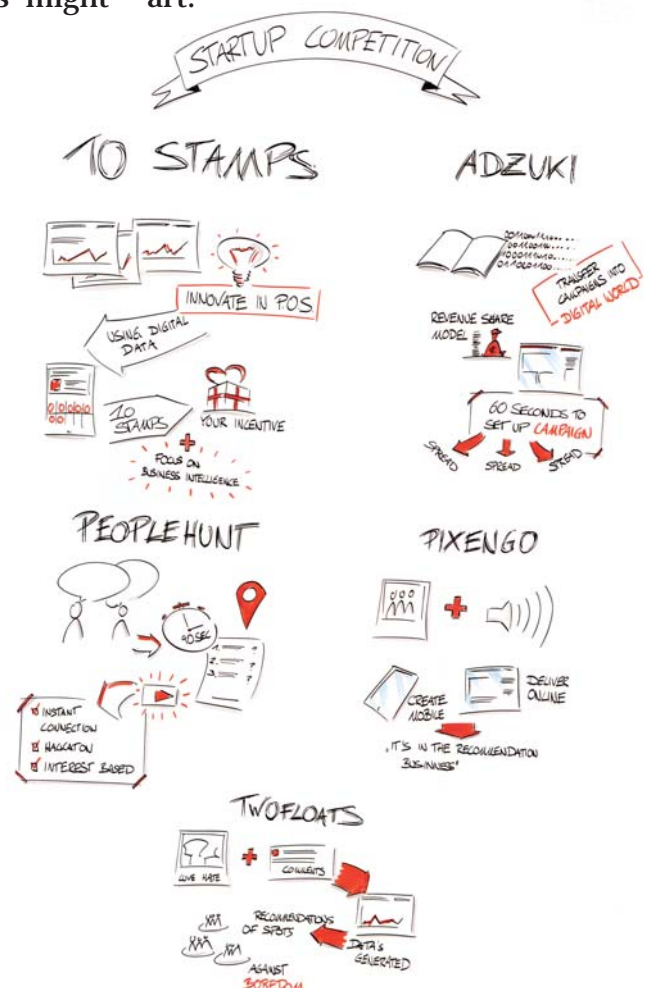 s might art.
STARTUP COMPETITION
10 STAMPS
INNOVATE IN P.O.S.
USING DIGITAL
DATA
10
STAMPS
YOUR INCENTIVE
+
FOCUS ON
BUSINESS INTELLIGENCE
ADZUKI
TRANSFER
CAMPAIGNS INTO
- DIGITAL WORLD
REVENUE SHARE
MODEL
60 SECONDS TO
SET UP CAMPAIGN
SPREAD
SPREAD
SPREAD
PEOPLEHUNT
90SEC
1. ?
2. ?
3. ?
INSTANT
CONNECTION
HACCATON
INTEREST BASED
PIXENGO
+
CREATE
MOBILE
DELIVER
ONLINE
"IT'S IN THE RECOMMENDATION
BUSINNESS"
TWOFLOATS
LOVE HATE
+
COMMENTS
DATA'S
GENERATED
RECOMMENDATIONS
OF SPOTS
AGAINST
BOREDOM